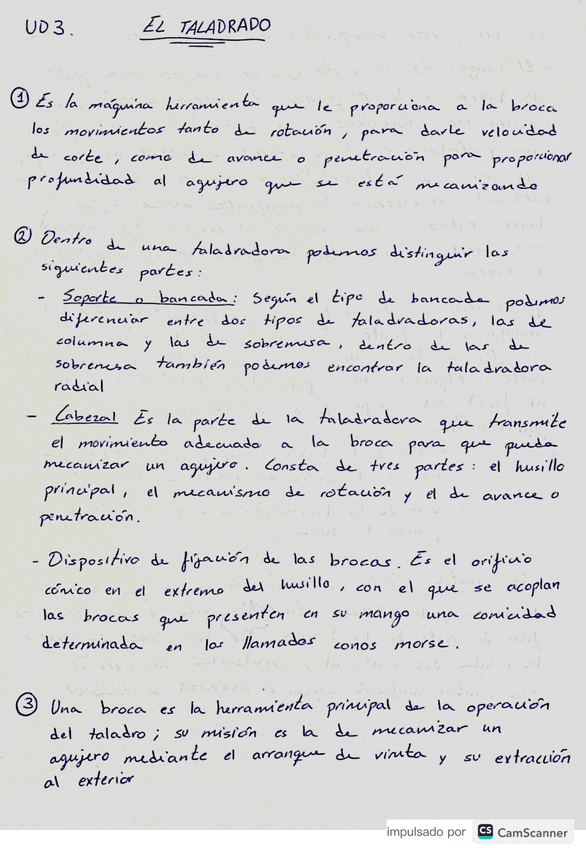 UD3. EL TALADRADO
① Es la máquina herramienta que le proporciona a la broca
los movimientos tanto de rotación, para darle velocidad
de corte, como de avance o penetración para proporcionar
profundidad al agujero que se está mecanizando
② Dentro de una taladradora podemos distinguir las
siguientes partes:
- Soporte o bancada: Según el tipo de bancada podemos
diferenciar entre dos tipos de taladradoras, las de
columna y las de sobremesa, dentro de las de
sobremesa también podemos encontrar la taladradora
radial
- Cabezal Es la parte de la taladradora que transmite
el movimiento adecuado a la broca para que pueda
mecanizar un agujero. Consta de tres partes: el husillo
principal, el mecanismo de rotación y el de avance o
penetración.
- Dispositivo de fijación de las brocas. Es el orificio
cónico en el extremo del husillo, con el que se acoplan
las brocas que presenten en su mango una conicidad
determinada en los llamados conos morse.
③ Una broca es la herramienta principal de la operación
del taladro; su misión es la de mecanizar un
agujero mediante el arranque de viruta y su extracción
al exterior
impulsado por CS CamScanner